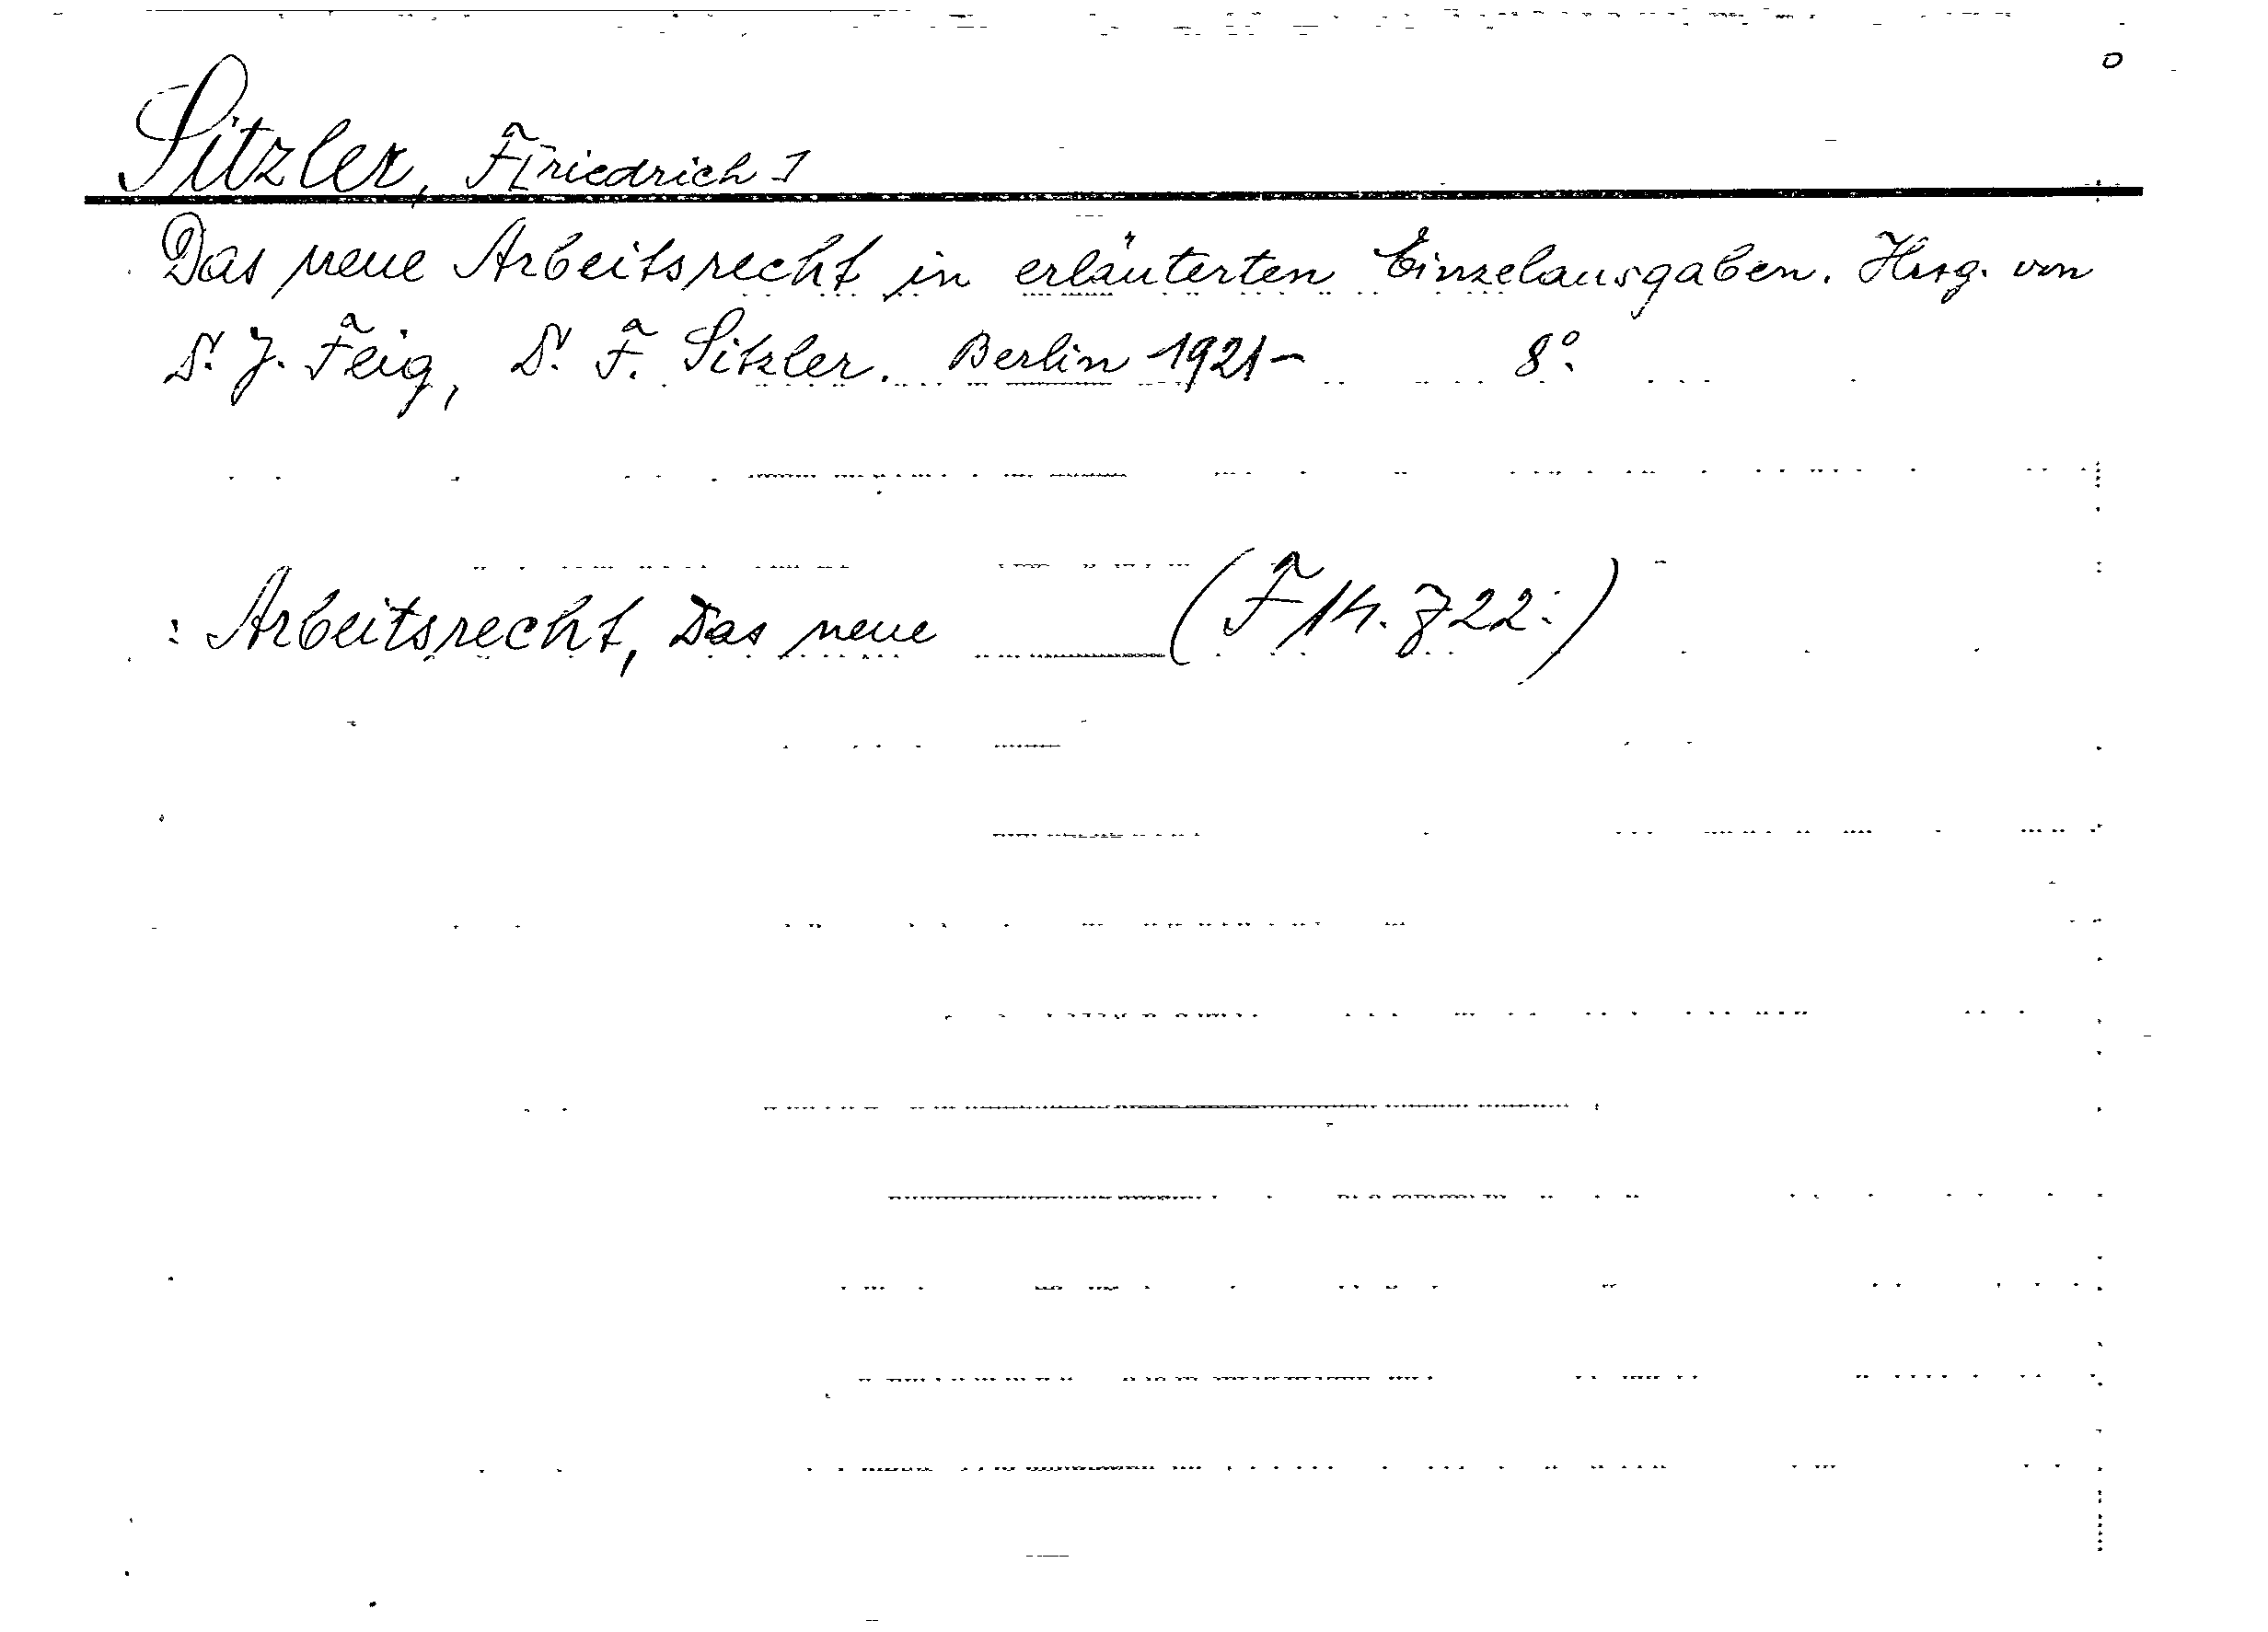 Sitzler, F[riedrich]
Das neue Arbeitsrecht in erläuterten Einzelausgaben. Hrsg. von
Dr. J. Feig, Dr. F. Sitzler. Berlin 1921- 8°.
: Arbeitsrecht, Das neue (F 14. Z 22:)